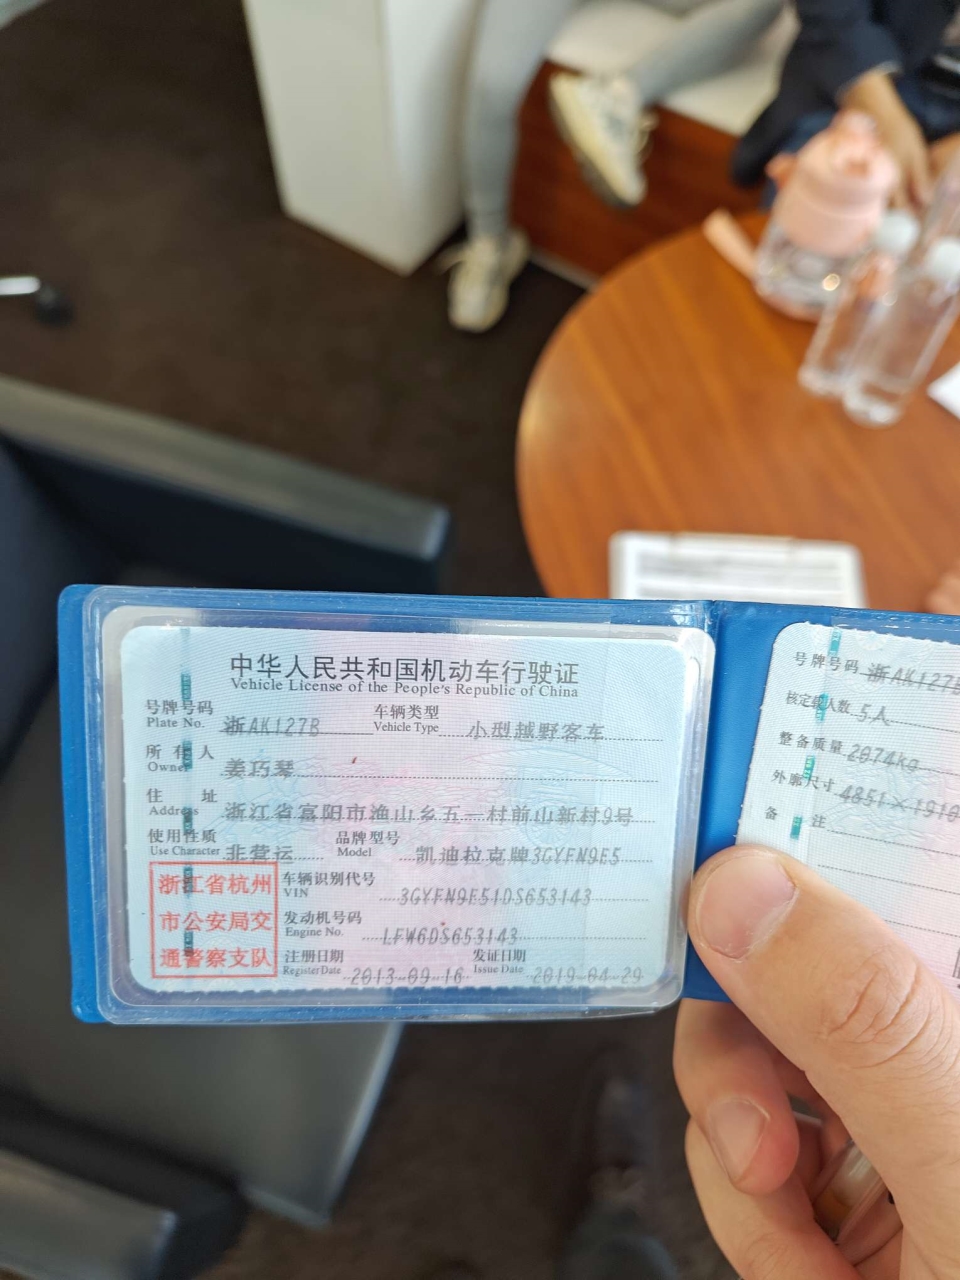 中华人民共和国机动车行驶证
Vehicle License of the People's Republic of China
号牌号码 浙AK127B 车辆类型 小型越野客车
Plate No. Vehicle Type
所有人 姜巧琴
Owner
住址 浙江省富阳市渔山乡五一村前山新村9号
Address
使用性质 非营运 品牌型号 凯迪拉克牌3GYFN9E5
Use Character Model
浙江省杭州
市公安局交
通警察支队
车辆识别代号
VIN 3GYFN9E51DS653143
发动机号码
Engine No. LFW6DS653143
注册日期 2013-09-16 发证日期 2019-04-29
Register Date Issue Date
号牌号码 浙AK127B
核定载人数 5人
整备质量 2074kg
外廓尺寸 4851×1910
备注